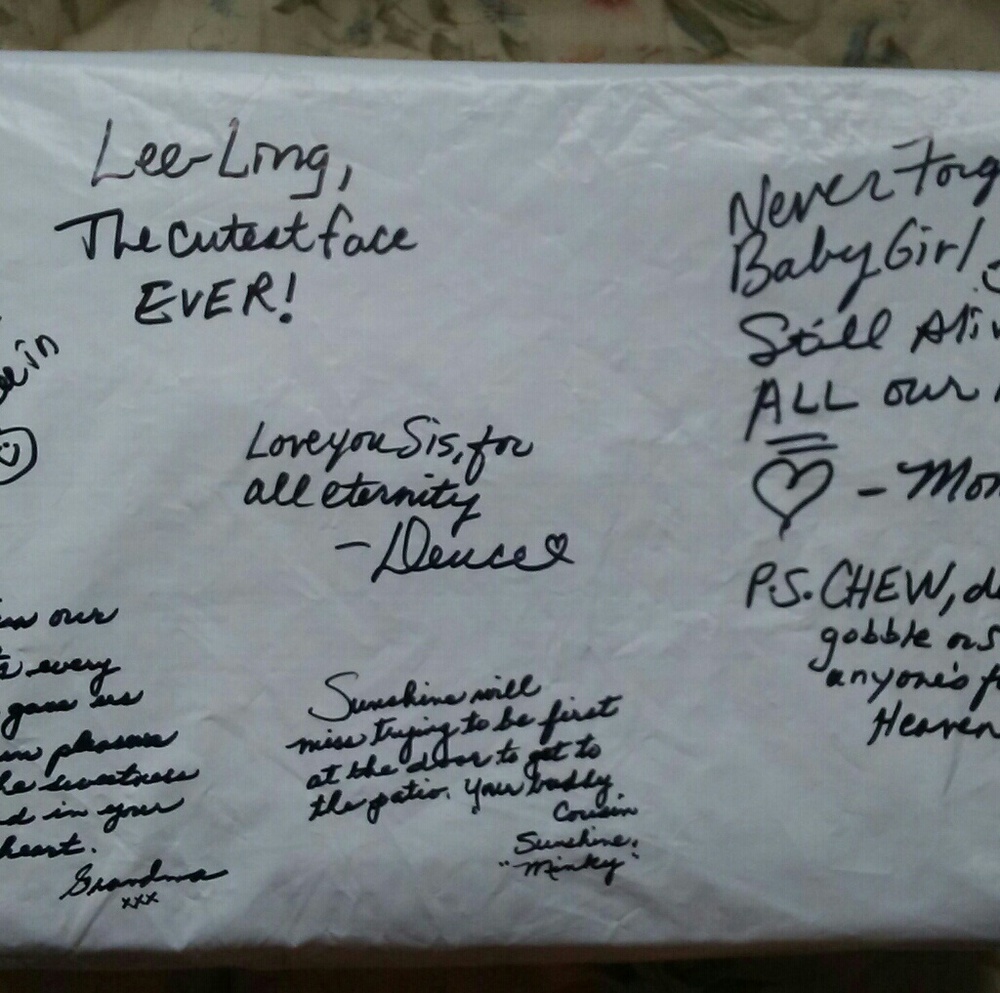 Lee-Ling,
The cutest face
EVER!
in
Love you Sis, for
all eternity
- Deuce
our
every
gave us
pleasure
sweetness
in your
heart.
Grandma
xxx
Sunshine will
miss trying to be first
at the door to get to
the patio. Your buddy,
Cousin
Sunshine,
"Minky"
Never Forg
Baby Girl
Still Ali
ALL our
- Mom
P.S. CHEW, d
gobble or s
anyone's f
Heaven